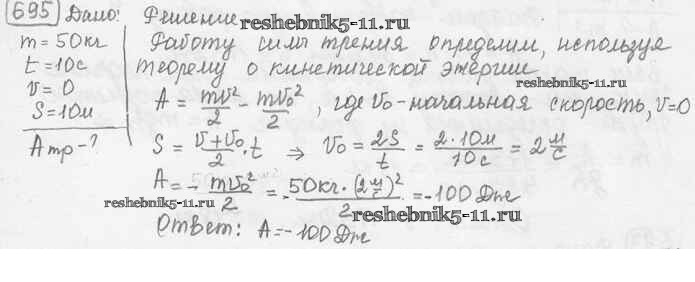 695 Дано: Решение reshebnik5-11.ru
m = 50кг Работу силы трения определим, используя
t = 10с теорему о кинетической энергии reshebnik5-11.ru
v = 0 A = mv²/2 - mv₀²/2, где v₀ - начальная скорость, v=0
S = 10м
Aтр - ? S = (v+v₀)/2 · t ⇒ v₀ = 2S/t = 2·10м/10с = 2 м/с
A = - mv₀²/2 = - 50кг·(2 м/с)²/2 = -100 Дж
reshebnik5-11.ru reshebnik5-11.ru
Ответ: A = -100 Дж